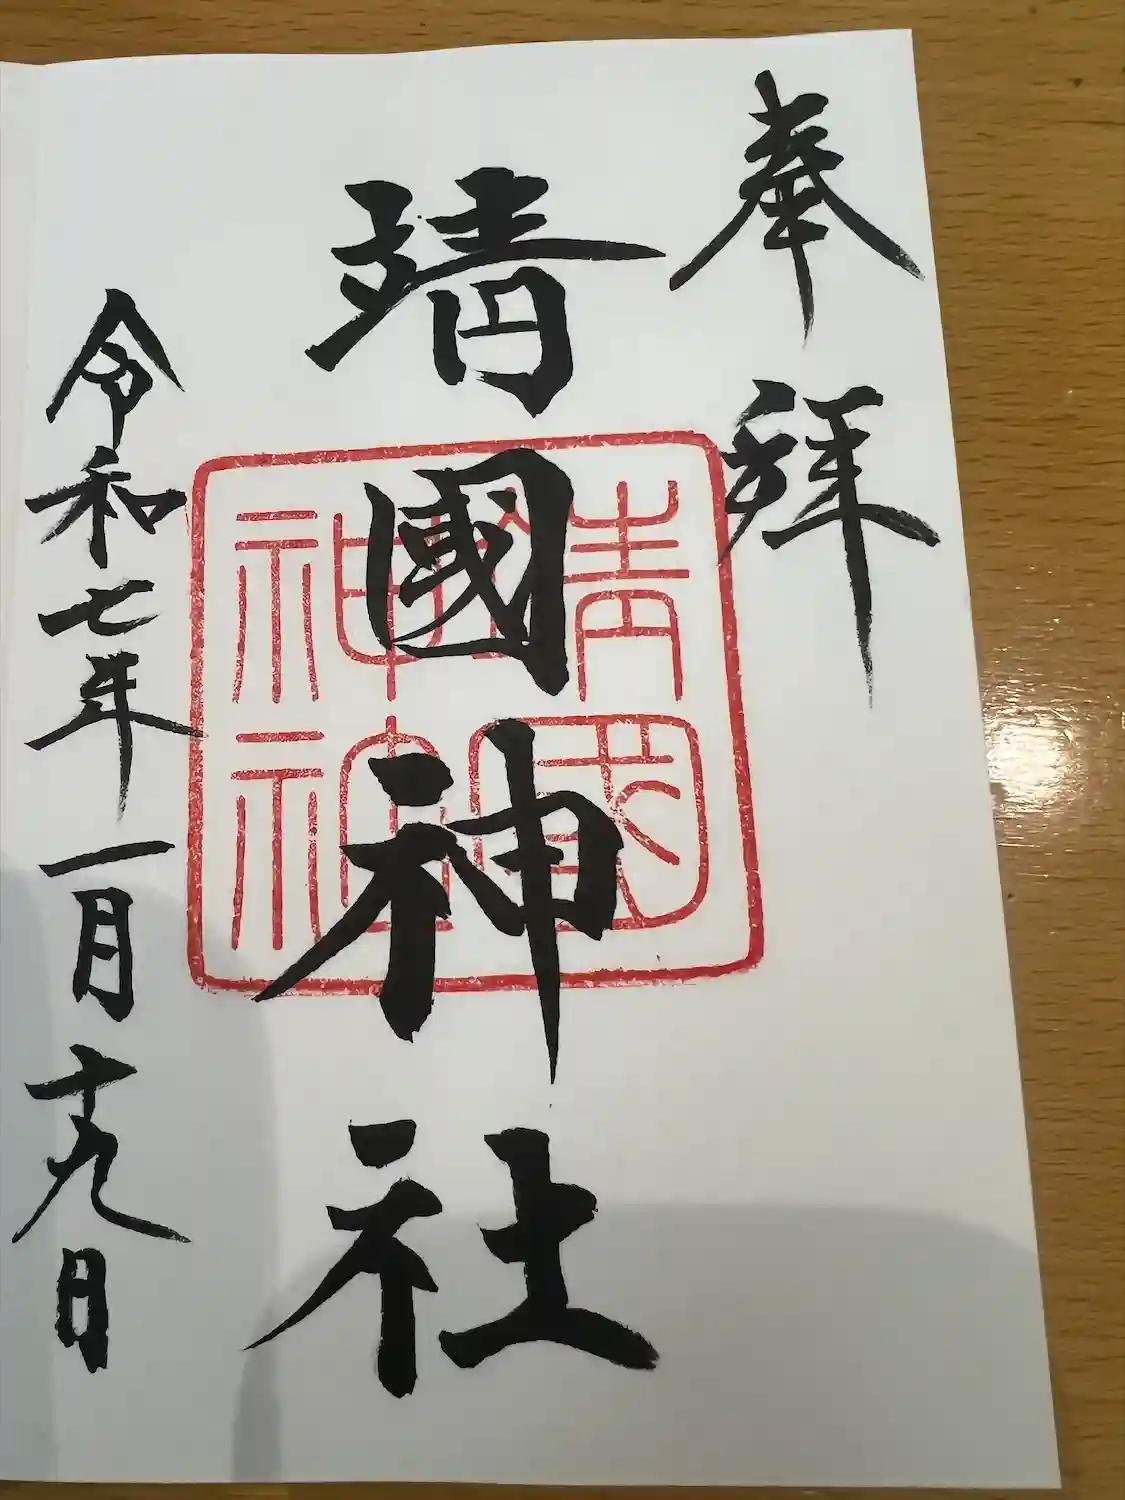 奉拜
靖國神社
令和七年一月十九日
靖國
神社